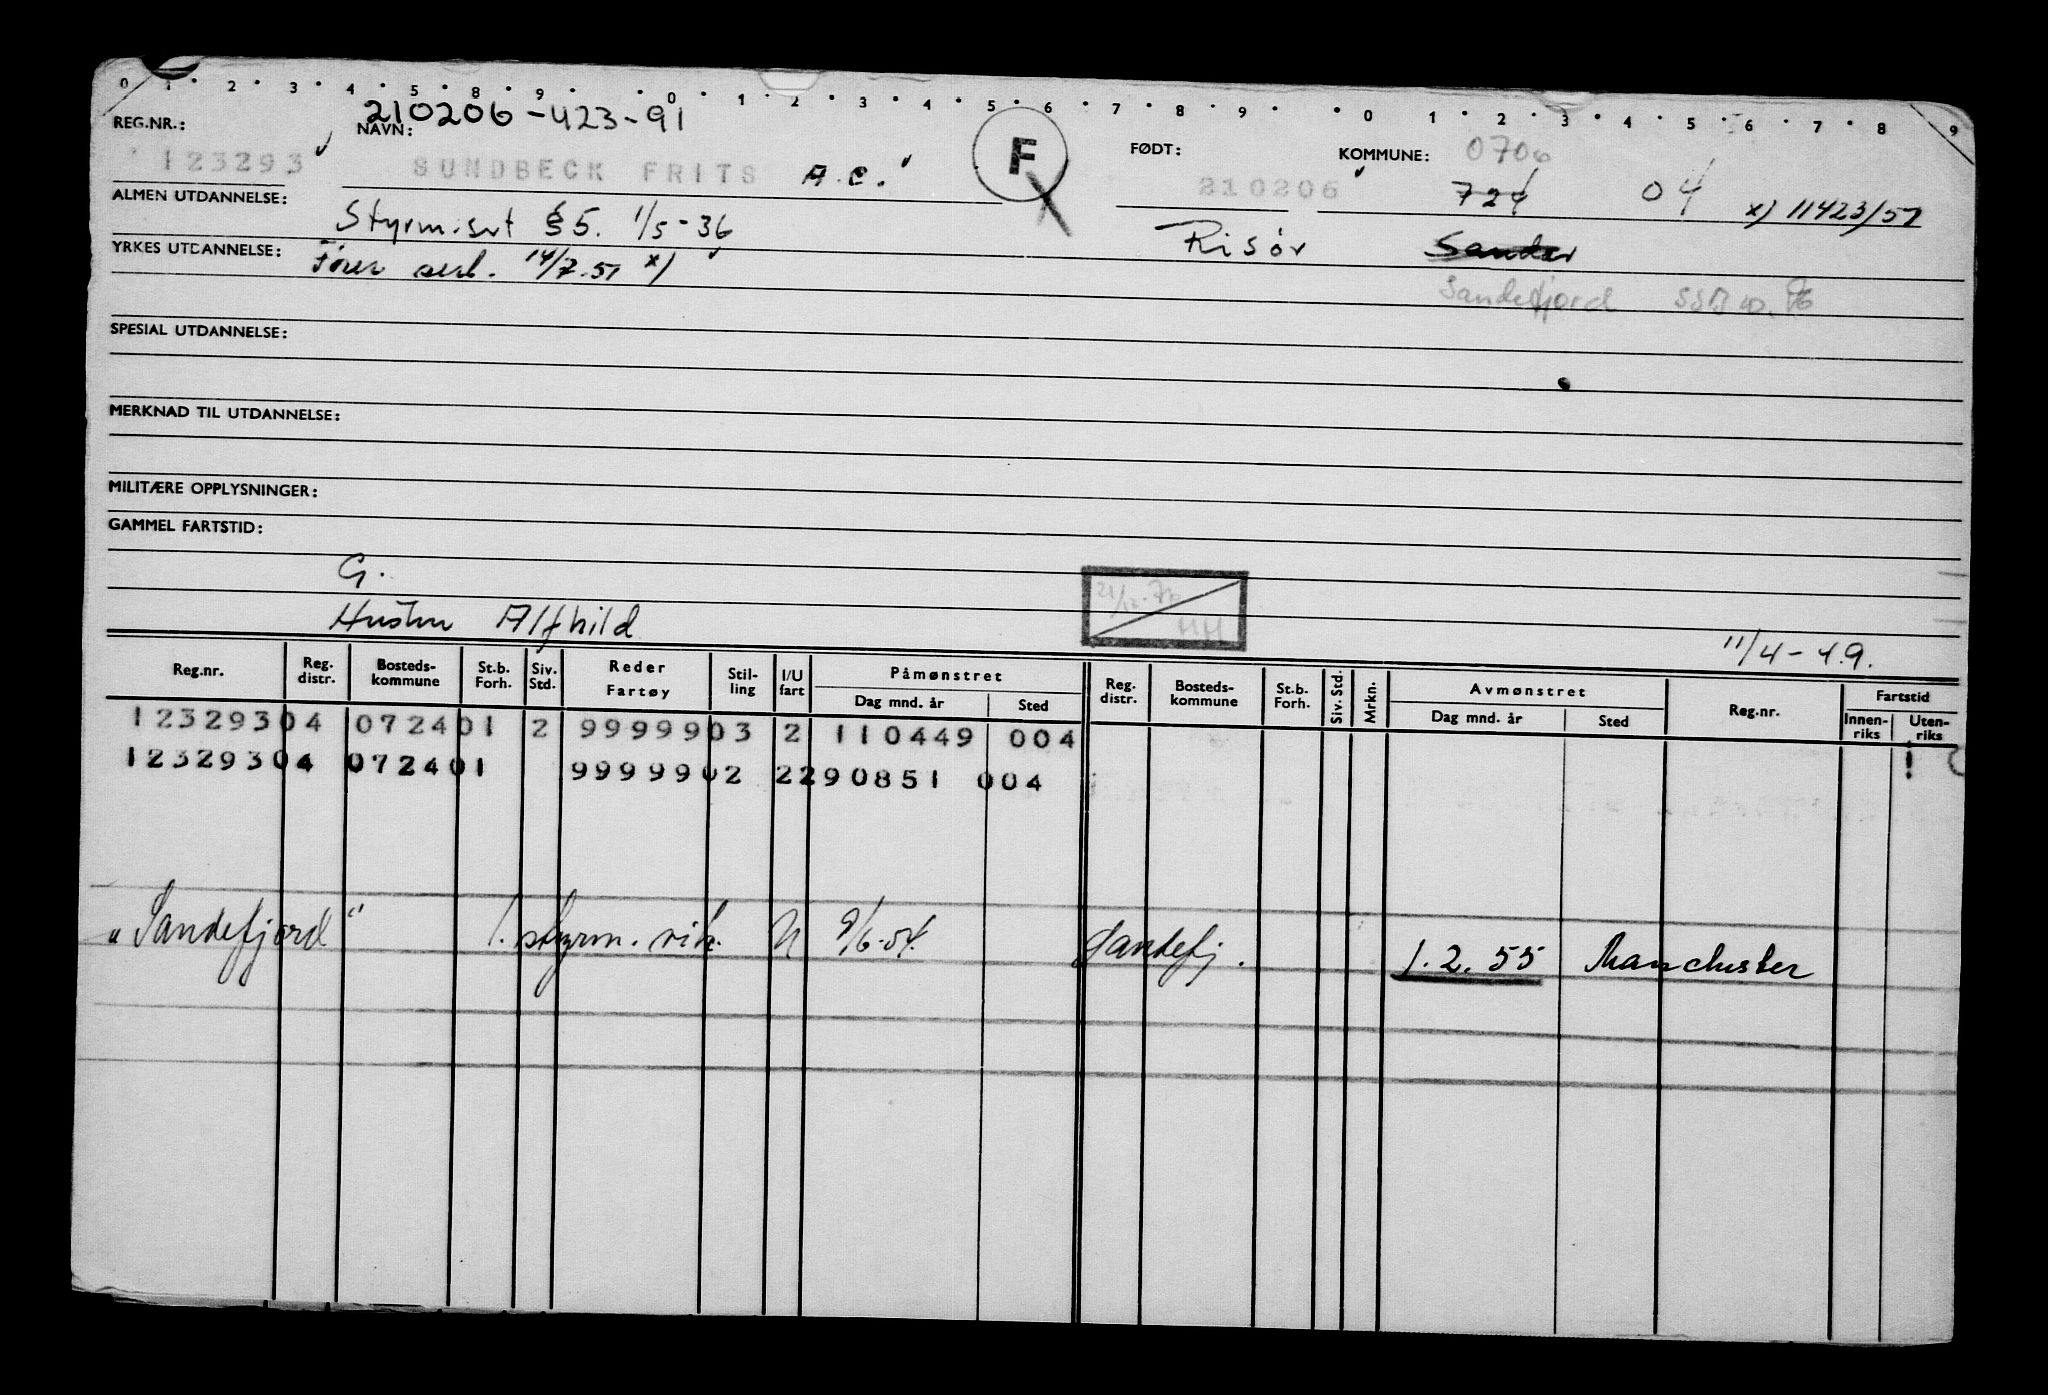 0 1 2 3 4 5 8 9 0 1 2 3 4 5 6 7 8 9 0 1 2 3 4 5 6 7 8 9
210206-423-91
REG.NR.: NAVN: FØDT: KOMMUNE: 0706
123293 SUNDBECK FRITS A.C. F 210206 724 04 x) 11423/51
ALMEN UTDANNELSE: Styrm.sert §5. 1/5-36 Risør Sandar
YRKES UTDANNELSE: Fører sert. 14/7.51 x)
Sandefjord
SPESIAL UTDANNELSE:
MERKNAD TIL UTDANNELSE:
MILITÆRE OPPLYSNINGER:
GAMMEL FARTSTID:
G.
21/12.76 HH
Hustru Alfhild
11/4-49.
Reg.nr. Reg. distr. Bosteds-kommune St.b. Forh. Siv. Std. Reder Fartøy Stil-ling I/U fart Påmønstret Dag mnd. år Sted Reg. distr. Bosteds-kommune St.b. Forh. Siv. Std. Mrkn. Avmønstret Dag mnd. år Sted Reg.nr. Fartstid Innen-riks Uten-riks
123293 04 0724 01 2 99999 03 2 110449 004
123293 04 0724 01 99999 02 2 290851 004
"Sandefjord" 1. styrm. vik. U 9/6.54. Sandefj. 1.2.55 Manchester